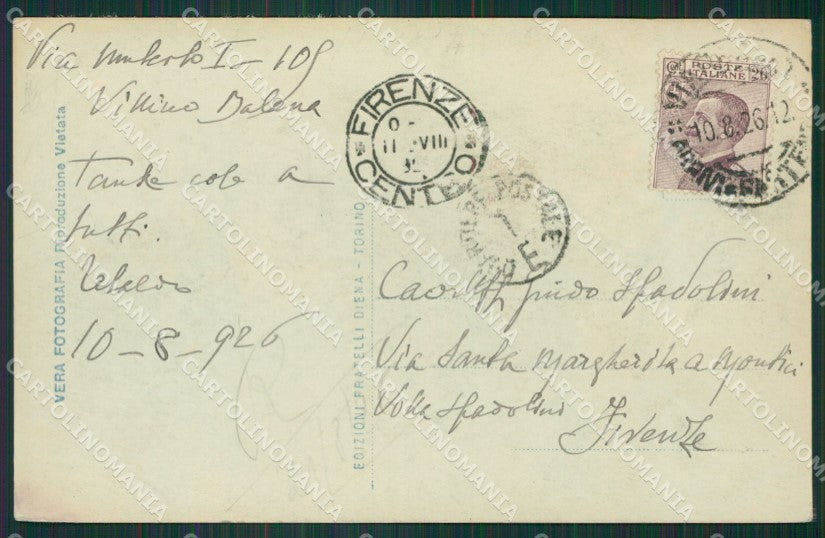 Via Umberto I - 109
Villino Balena
Tante cose a
tutti.
Ubaldo
10-8-926
VERA FOTOGRAFIA Riproduzione Vietata
EDIZIONI FRATELLI DIENA - TORINO
FIRENZE
CENTRO
POSTALE
POSTE
ITALIANE
10.8.26.12
Guido Spadolini
Via Santa Margherita a Montici
Villa Spadolini
Firenze
CARTOLINOMANIA